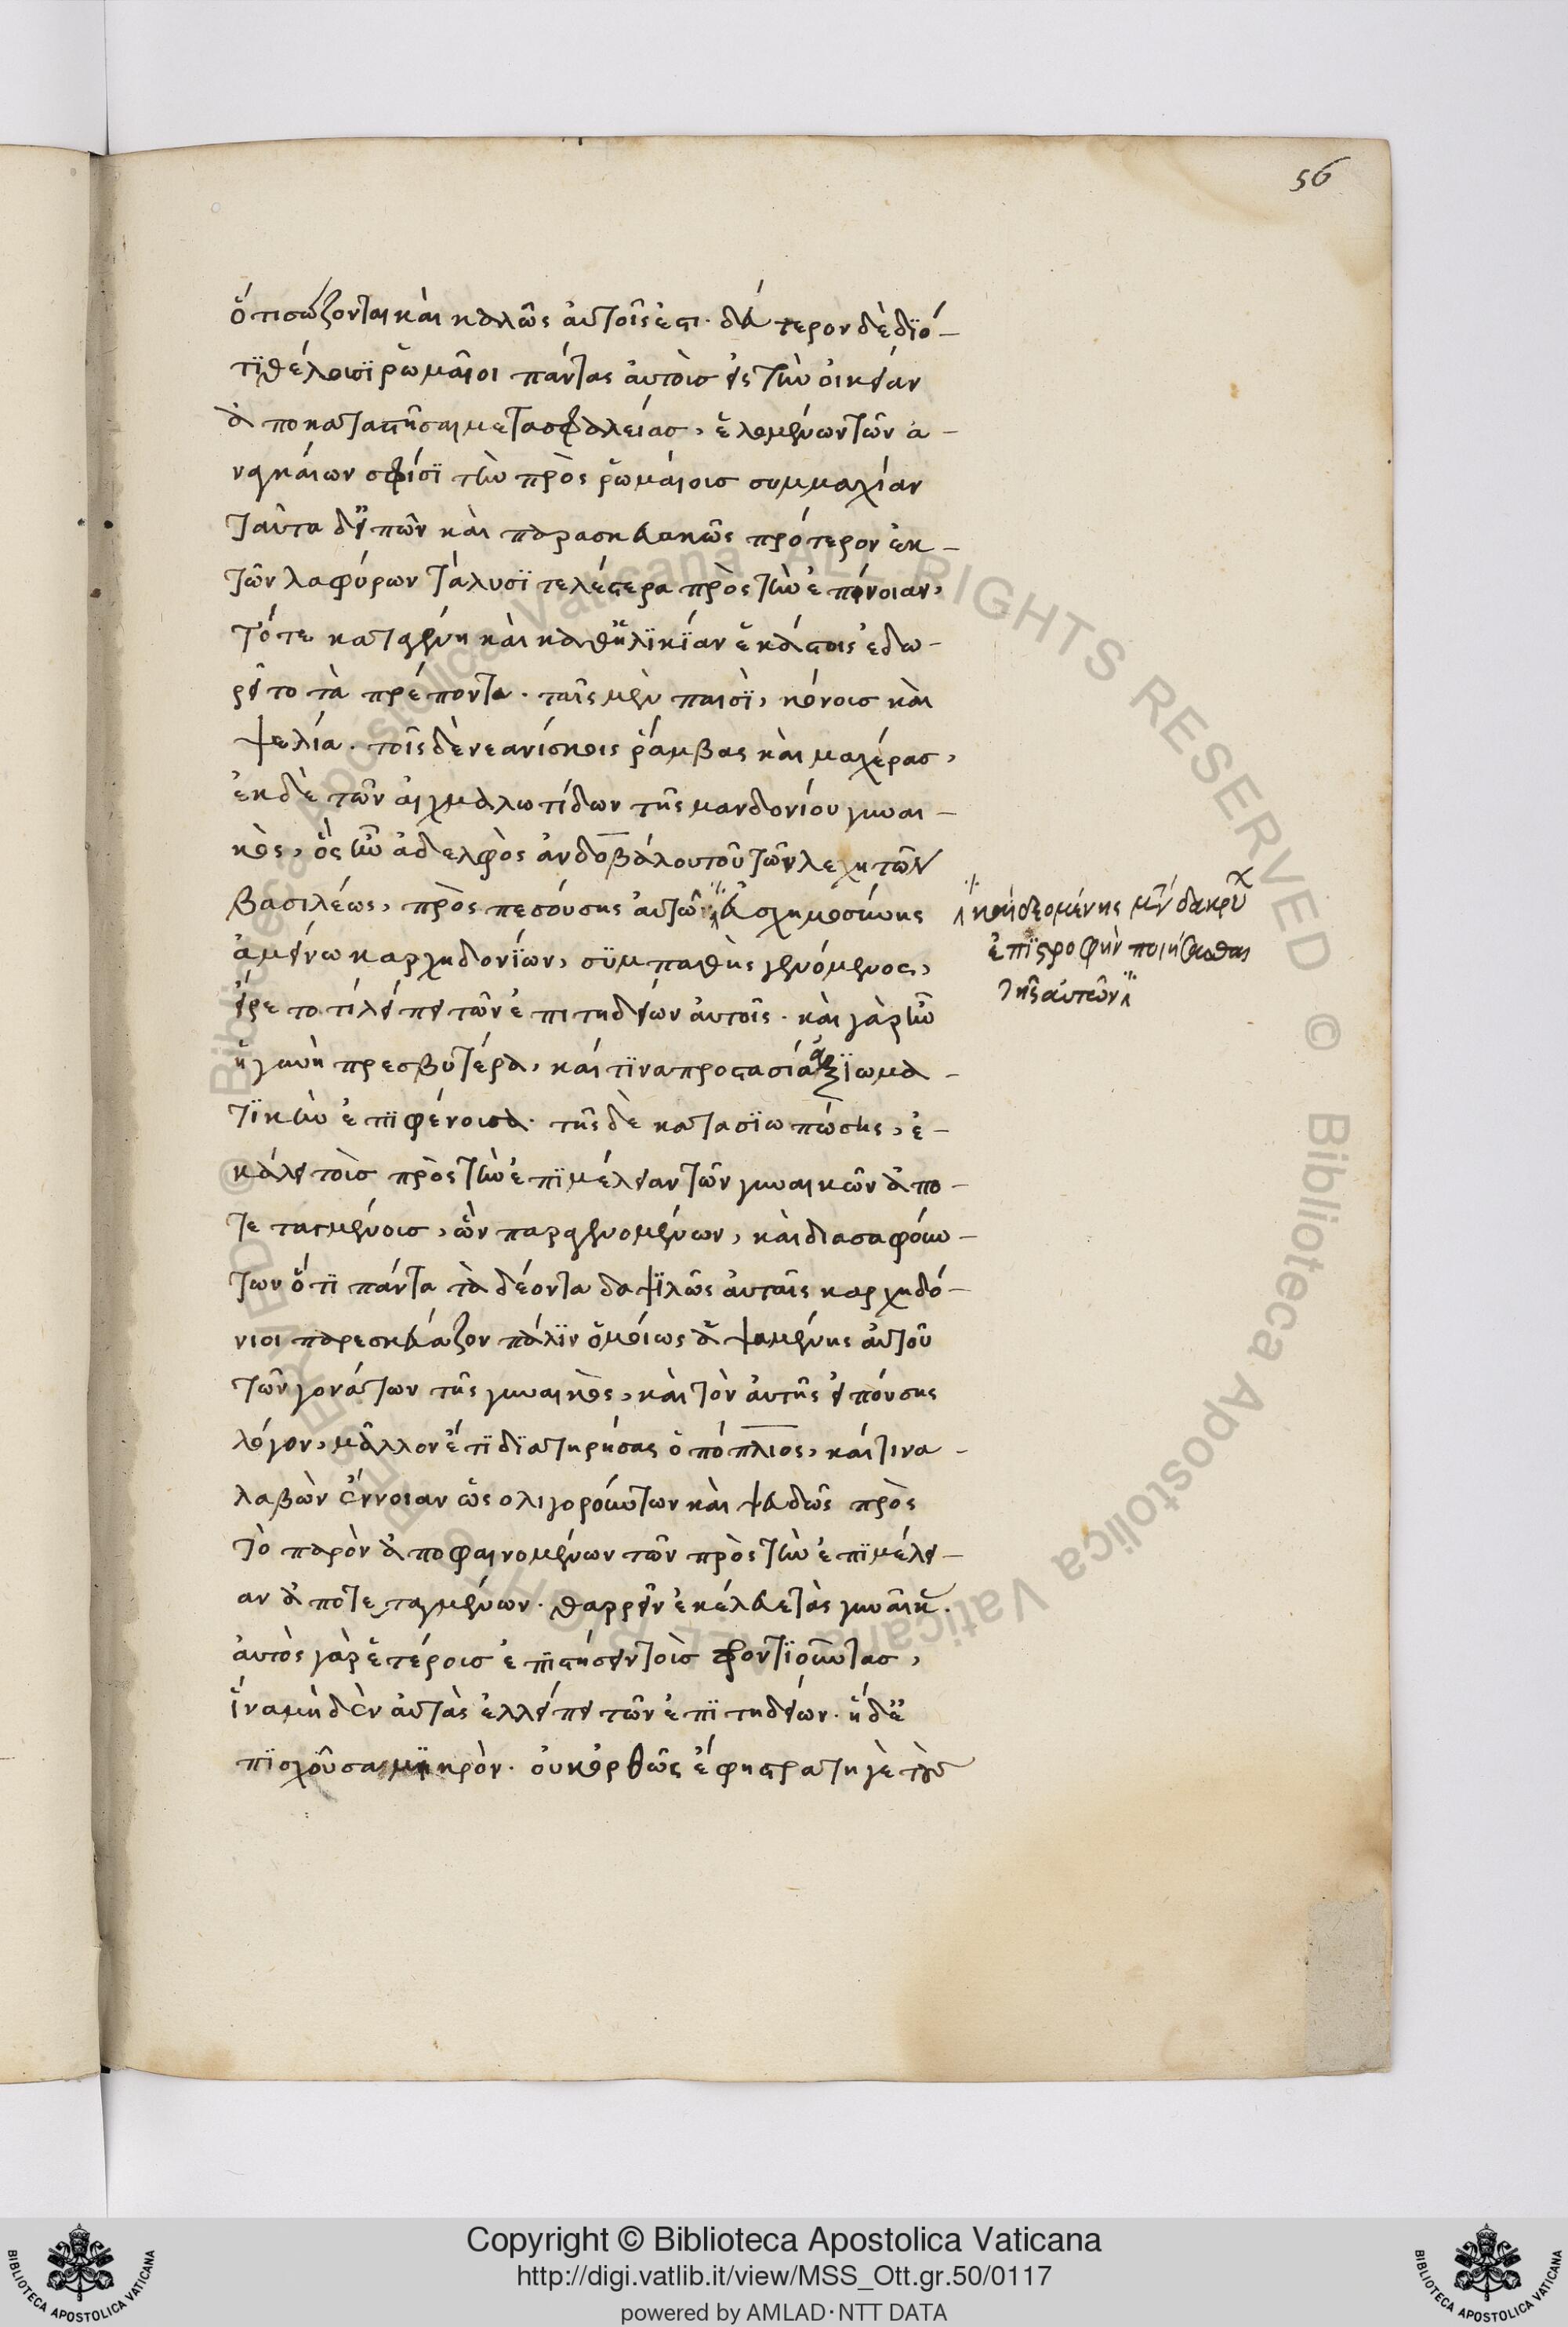 56
ὅτι σώζονται καὶ καλῶς αὐτοῖς ἐστι. δεύτερον δὲ διό-
τι θέλουσι ῥωμαῖοι πάντας αὐτοὺς εἰς τὴν οἰκείαν
ἀποκαταστῆσαι μετ ασφαλείας, ἑλομένων τῶν ἀ-
ναγκαίων σφίσι τὴν πρὸς ῥωμαίους συμμαχίαν
ταῦτα δ' εἰπῶν καὶ παρασκευακὼς πρότερον ἐκ
τῶν λαφύρων τὰ λυσιτελέστερα πρὸς τὴν ἐπίνοιαν,
τότε κατὰ γένη καὶ καθ' ἡλικίαν ἑκάστοις ἐδω-
ρεῖτο τὰ πρέποντα. ταῖς μὲν παισὶ, κόνους καὶ
ψελία. τοῖς δὲ νεανίσκοις ῥάμβας καὶ μαχέρας,
ἐκ δὲ τῶν αἰχμαλωτίδων τῆς μανδονίου γυναι-
κὸς, ὃς ἦν ἀδελφὸς ἀνδοβάλου τοῦ τῶν λεχητῶν
βασιλέως, πρὸς πεσούσης αὐτῶ εὐσχημοσύνης
ἀμείνω καρχηδονίων, συμπαθὴς γενόμενος,
ἤρετο τί λείπει τῶν ἐπιτηδείων αὐτοῖς. καὶ γὰρ ἦν
ἡ γυνὴ πρεσβυτέρα, καί τινα προστασίαν ἀξιωμα-
τικὴν ἐπιφέρουσα. τῆς δὲ κατασιωπώσης, ἐ-
κάλει τοὺς πρὸς τὴν ἐπιμέλειαν τῶν γυναικῶν ἀπο-
τεταγμένους, ὧν παραγενομένων, καὶ διασαφούν-
των ὅτι πάντα τὰ δέοντα δαψιλῶς αὐταῖς καρχηδό-
νιοι παρεσκεύαζον πάλιν ὁμοίως ἁψαμένης αὐτοῦ
τῶν γονάτων τῆς γυναικὸς, καὶ τὸν αὐτῆς εἰπούσης
λόγον, μᾶλλον ἔτι διατηρήσας ὁ πόπλιος, καί τινα
λαβὼν ἔννοιαν ὡς ολιγορούντων καὶ ψευδῶς πρὸς
τὸ παρὸν ἀποφαινομένων τῶν πρὸς τὴν ἐπιμέλει-
αν ἀποτεταγμένων. θαρρεῖν ἐκέλευε τὰς γυναῖκ.
αὐτὸς γὰρ ἑτέρους ἐπιστήσειν τοὺς φροντιοῦντας,
ἵνα μηδὲν αὐτὰς ἐλλείπει τῶν ἐπιτηδείων. ἡ δ' ἐ
πισχοῦσα μικρὸν. οὐκ ὀρθῶς ἔφη στρατηγὲ τοὺς
καὶ δεομένης μετὰ δακρύ
ἐπιστροφὴν ποιήσασθαι
τῆς αὐτῶν
Copyright © Biblioteca Apostolica Vaticana
http://digi.vatlib.it/view/MSS_Ott.gr.50/0117
powered by AMLAD·NTT DATA
BIBLIOTECA APOSTOLICA VATICANA
BIBLIOTECA APOSTOLICA VATICANA